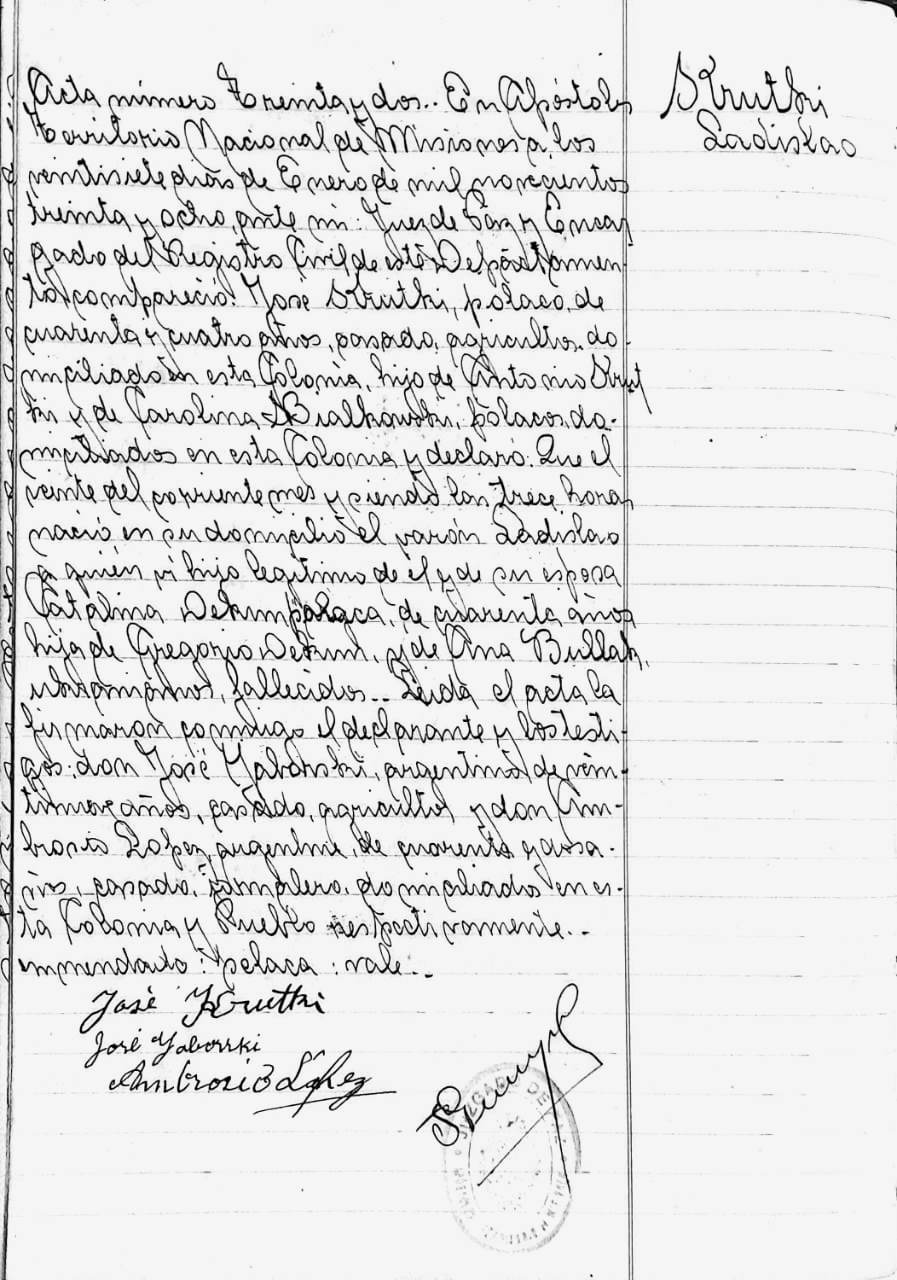 Acta número Treinta y dos.. En Apóstoles
Territorio Nacional de Misiones a los
veintisiete dias de Enero de mil novecientos
treinta y ocho, ante mi: Juez de Paz y Encar
gado del Registro Civil de este Departamen-
to, compareció: José Krutki, polaco, de
cuarenta y cuatro años, casado, agricultor, do-
miciliado en esta Colonia, hijo de Antonio Krut
ki y de Carolina Bialkowski, polacos, do-
miciliados en esta Colonia y declaró: Que el
veinte del corriente mes y siendo las trece horas
nació en su domicilio el varón Ladislao
a quién vi hijo legítimo de el y de su esposa
Catalina Dekun, polaca, de cuarenta años
hija de Gregorio Dekun, y de Ana Bullak,
ukranianos, fallecidos.. Leida el acta la
firmaron conmigo el declarante y los testi-
gos: don José argentino de vein-
tinueve años, casado, agricultor y don Am-
brosio Lopez, argentino, de cuarenta y dos a-
ños, casado, jornalero, domiciliados en es-
ta Colonia y Pueblo respectivamente..
enmendado: polaca: vale..
Krutki
Ladislao
José Krutki
José
Ambrosio López
JUZGADO DE PAZ